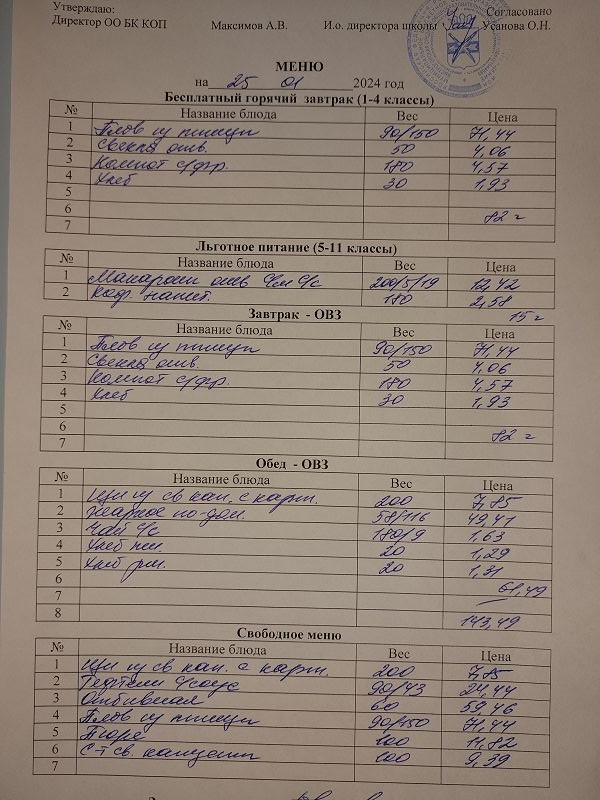 Утверждаю: Согласовано
Директор ОО БК КОП Максимов А.В. И.о. директора школы Усанова О.Н.
МЕНЮ
на 25 01 2024 год
Бесплатный горячий завтрак (1-4 классы)
№ Название блюда Вес Цена
1 Плов из птицы 90/150 71,44
2 Свекла отв. 50 4,06
3 Компот с/фр. 180 4,57
4 Хлеб 30 1,93
5
6 82 =
7
Льготное питание (5-11 классы)
№ Название блюда Вес Цена
1 Макароны отв с/м с/с 200/5/19 12,42
2 Коф. напит. 180 2,58
15 =
Завтрак - ОВЗ
№ Название блюда Вес Цена
1 Плов из птицы 90/150 71,44
2 Свекла отв. 50 4,06
3 Компот с/фр. 180 4,57
4 Хлеб 30 1,93
5
6 82 =
7
Обед - ОВЗ
№ Название блюда Вес Цена
1 Щи из св кап. с карт. 200 7,85
2 Жаркое по-дом. 58/116 49,41
3 Чай с/с 180/9 1,63
4 Хлеб пш. 20 1,29
5 Хлеб рж. 20 1,31
6 61,49
7
8 143,49
Свободное меню
№ Название блюда Вес Цена
1 Щи из св кап. с карт. 200 7,85
2 Тефтели с/соус 90/43 24,44
3 Отбивная 60 59,46
4 Плов из птицы 90/150 71,44
5 Пюре 100 11,82
6 С-т св. капусты 100 9,39
7